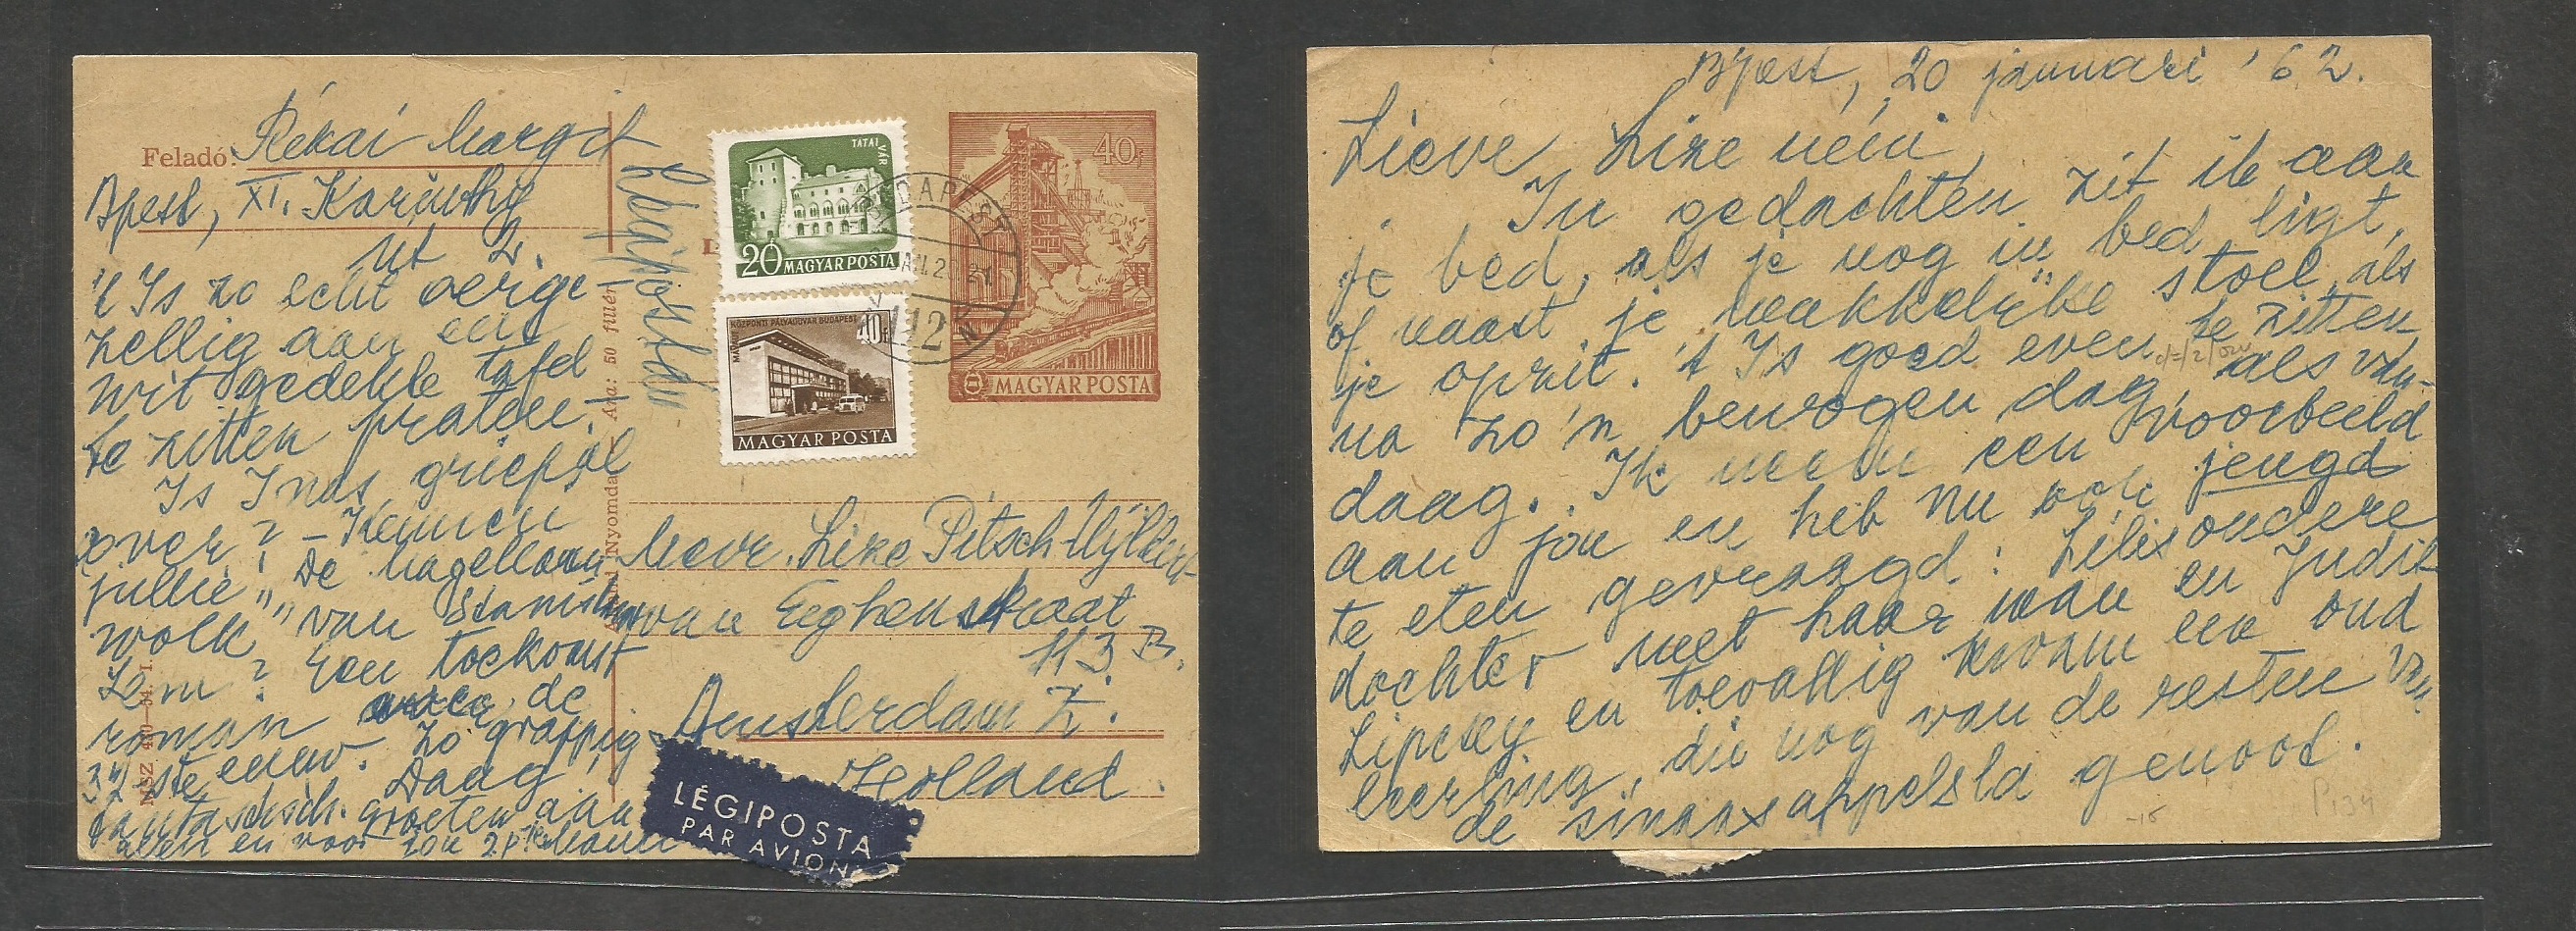 Feladó: Rékai Margit
Bpest, XI. Karinthy
út 2.
't Is zo echt oerge-
zellig aan een
wit gedekte tafel
te zitten praten. –
Is Inas griep al
over? – Kennen
jullie „De Magellaan
wolk" van Stanislaw
Lem? Een toekomst
roman over de
32ste eeuw. Zo grappig
Daag,
fantastisch. groeten aan
allen en voor jou
Légiposta
TATAI VÁR
20 MAGYAR POSTA
KÖZPONTI PÁLYAUDVAR BUDAPEST
40f
MAGYAR POSTA
BUDAPEST
112
40f
MAGYAR POSTA
Ára: 50 fillér
Nyomda
MSZ
Mevr. Lize Pitsch-Wijlker
van Eeghenstraat
113 B.
Amsterdam Z.
Holland.
LÉGIPOSTA
PAR AVION
Bpest, 20 januari '62.
Lieve Lize néni,
In gedachten zit ik aan
je bed, als je nog in bed ligt,
of naast je makkelijke stoel, als
je opzit. 't Is goed even te zitten
na zo'n bewogen dag, als van-
daag. Ik neem een voorbeeld
aan jou en heb nu ook jeugd
te eten gevraagd: Lilis oudere
dochter met haar man en Judit
Lipcsey en toevallig kwam een oud
leerling, die nog van de resten van
de sinaasappelsla genoot.
P. 34
-15